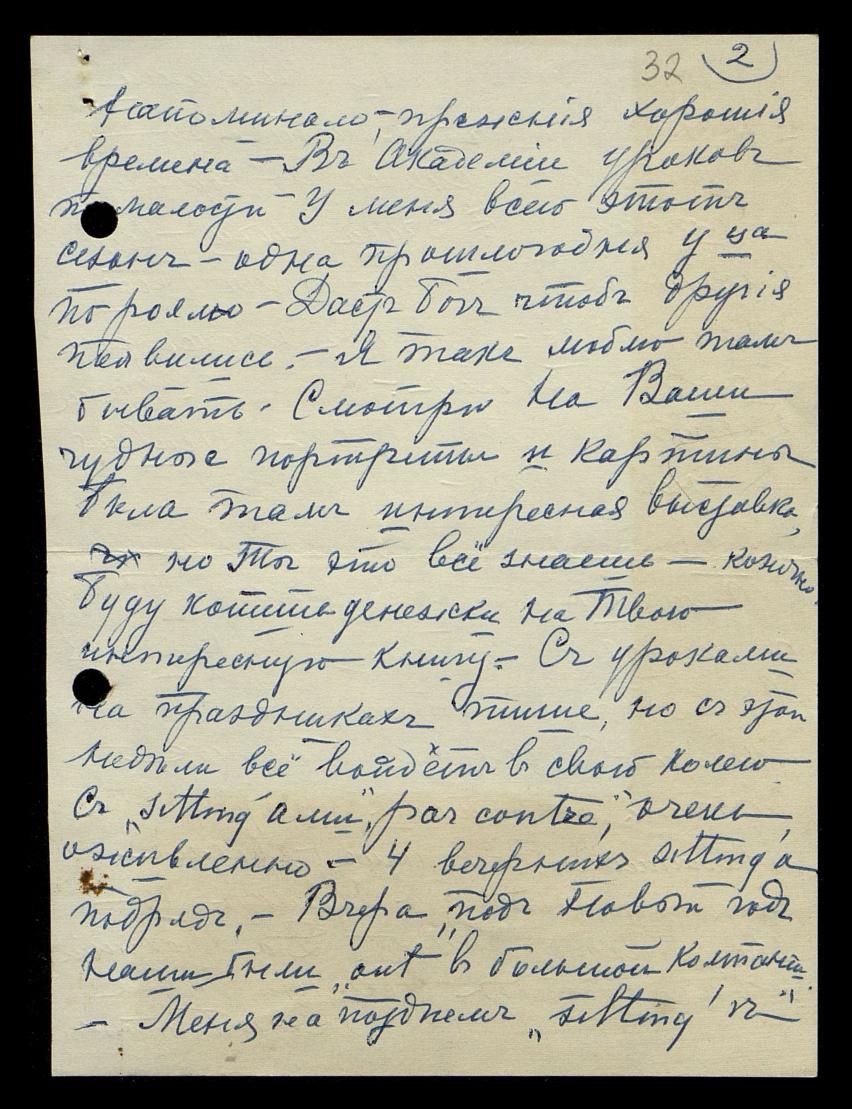 32 2
напоминало, – прежнія хорошія
времена – Въ Академіи уроковъ
по малости – У меня всего этотъ
сезонъ – одна прошлогодняя
по роялю – Дастъ Богъ чтобъ другія
появились. – Я такъ люблю тамъ
бывать. Смотрю на Ваши
чудные портреты и картины
Была тамъ интересная выставка,
но Ты это всё знаешь – конечно
буду копить денежки на Твою
интересную книгу. – Съ уроками
на праздникахъ тише, но съ этой
недѣли всё войдётъ въ свою колею
Съ „sitting'ами", par contre, очень
оживленно – 4 вечернихъ sitting'а
подрядъ. – Вчера „подъ Новый годъ
наши были „out" въ большой компаніи
– Меня на позднемъ „sitting'ѣ"